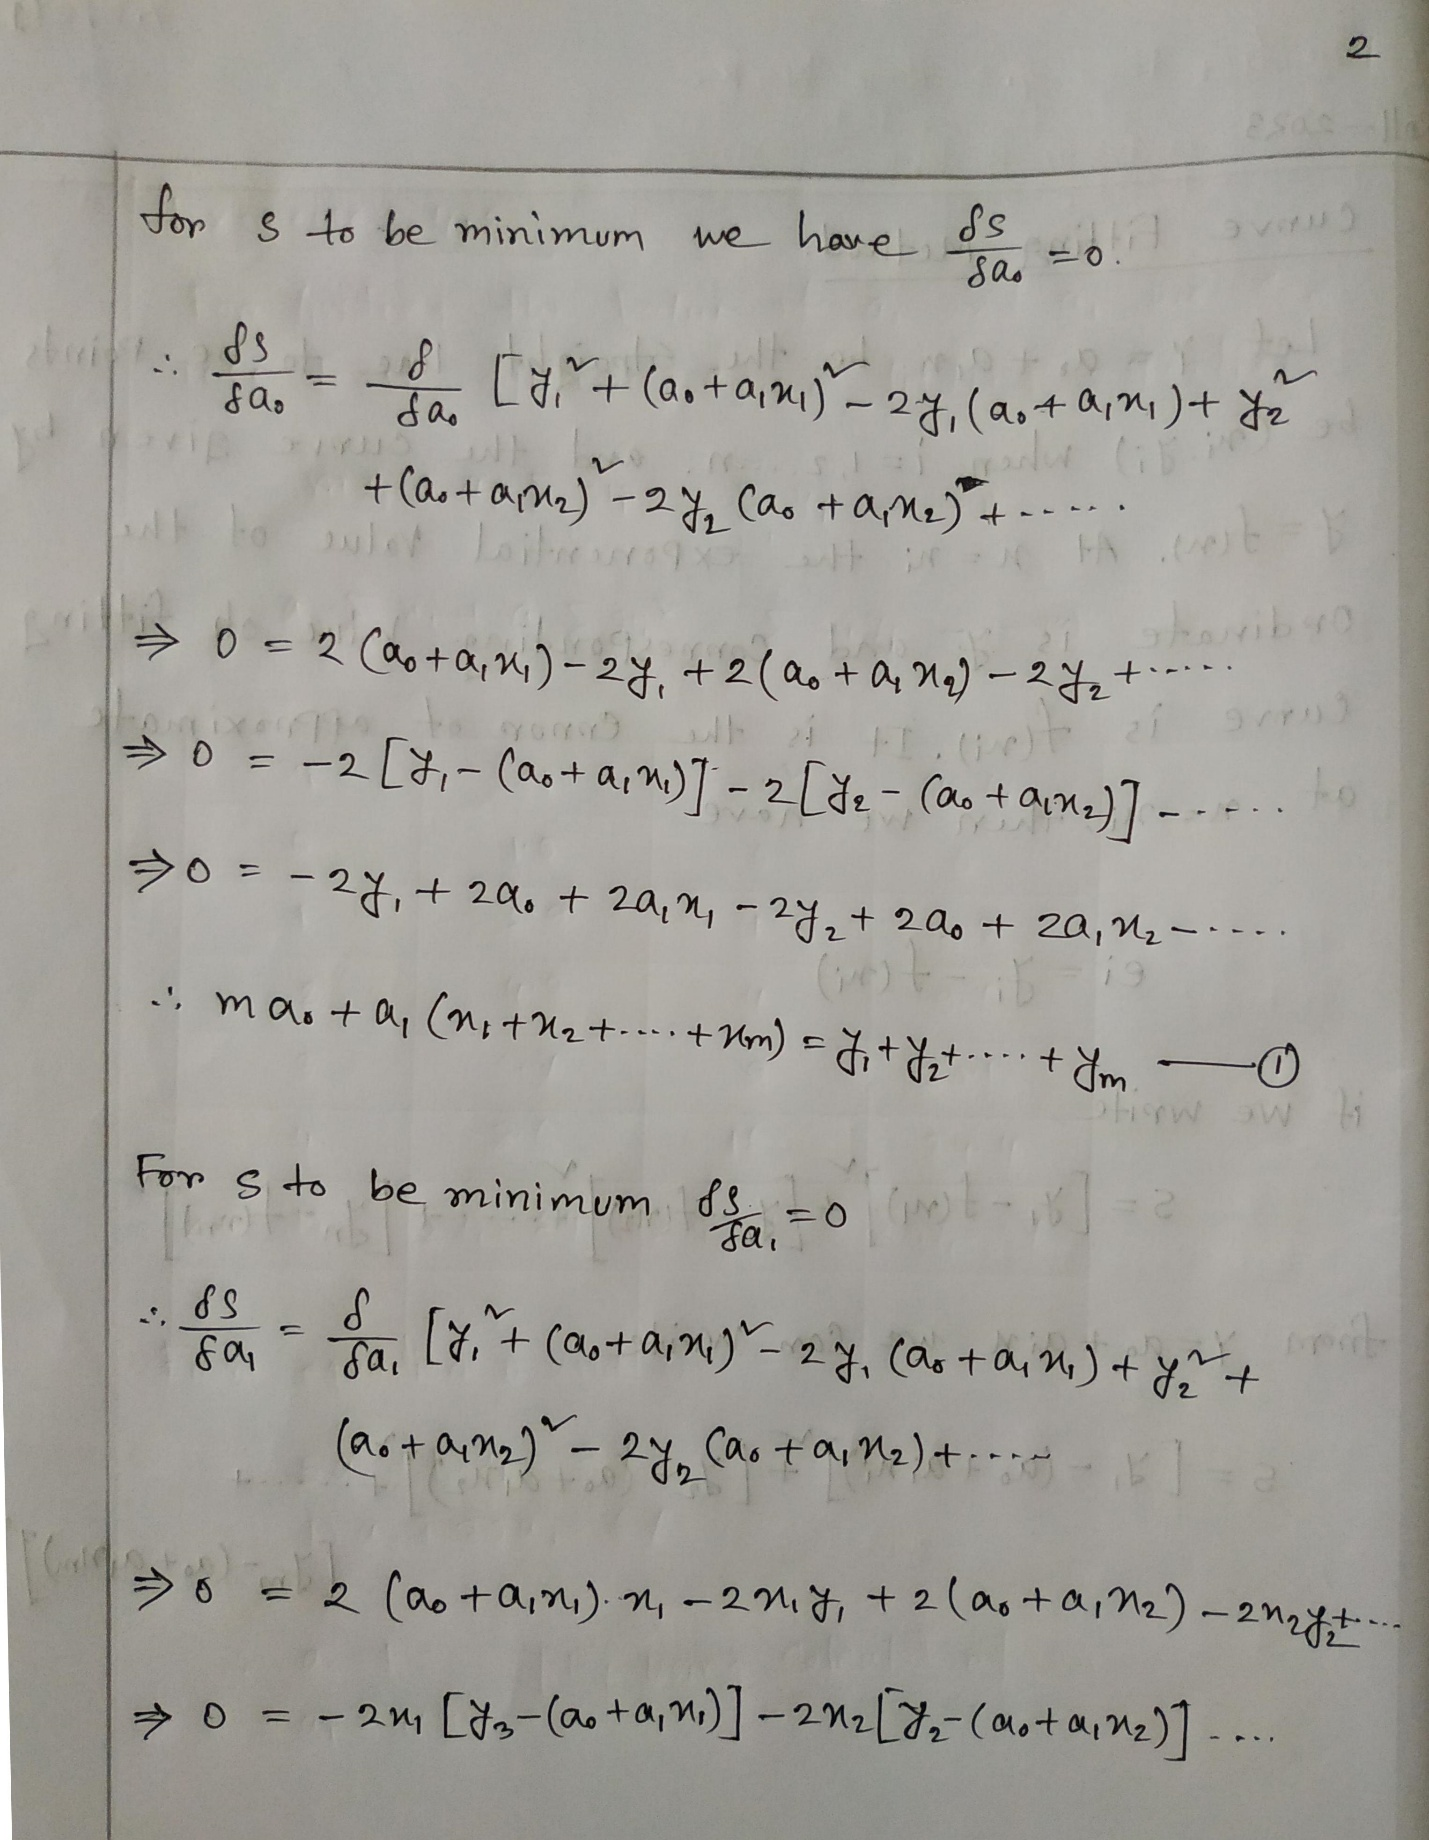 2
for s to be minimum we have δs/δa₀ = 0.
∴ δs/δa₀ = δ/δa₀ [y₁² + (a₀+a₁x₁)² − 2y₁(a₀+a₁x₁) + y₂²
+(a₀+a₁x₂)² − 2y₂(a₀+a₁x₂) + .....
⇒ 0 = 2(a₀+a₁x₁) − 2y₁ + 2(a₀+a₁x₂) − 2y₂ + .....
⇒ 0 = −2[y₁ − (a₀+a₁x₁)] − 2[y₂ − (a₀+a₁x₂)] − .....
⇒ 0 = −2y₁ + 2a₀ + 2a₁x₁ − 2y₂ + 2a₀ + 2a₁x₂ − .....
∴ ma₀ + a₁(x₁+x₂+....+xm) = y₁+y₂+....+ym —— ①
For s to be minimum δs/δa₁ = 0
∴ δs/δa₁ = δ/δa₁ [y₁² + (a₀+a₁x₁)² − 2y₁(a₀+a₁x₁) + y₂² +
(a₀+a₁x₂)² − 2y₂(a₀+a₁x₂) + .....
⇒ 0 = 2(a₀+a₁x₁).x₁ − 2x₁y₁ + 2(a₀+a₁x₂) − 2x₂y₂ + ...
⇒ 0 = −2x₁[y₃−(a₀+a₁x₁)] − 2x₂[y₂−(a₀+a₁x₂)] ....